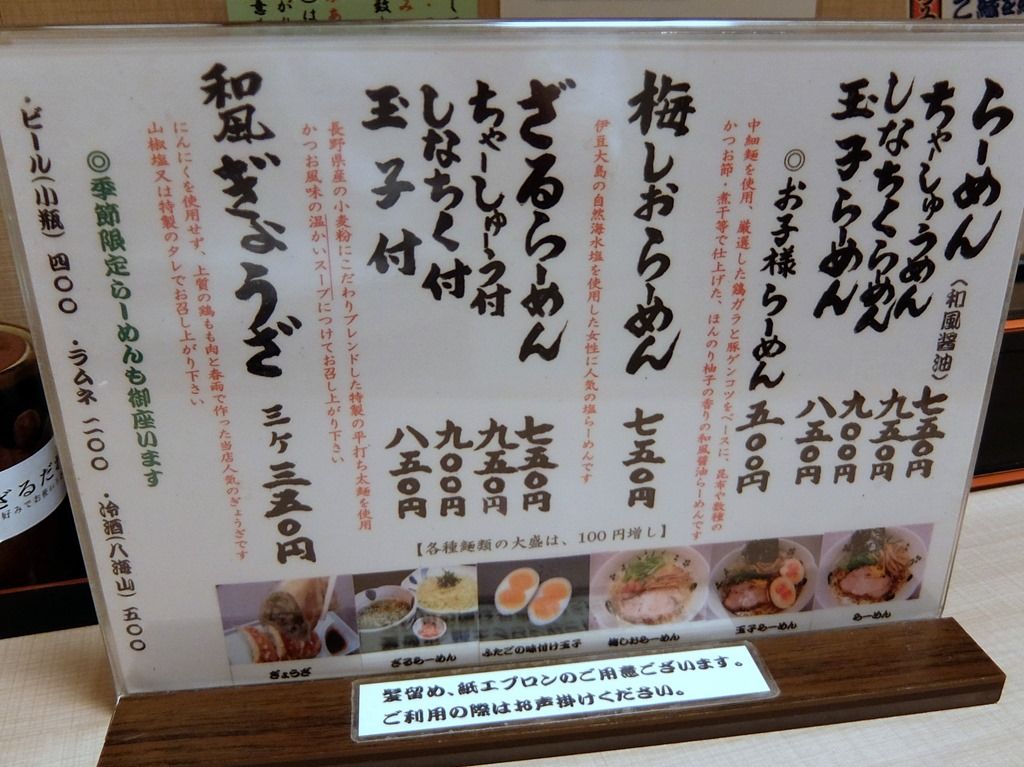 らーめん(和風醬油) 七五〇円
ちゃーしゅうめん 九五〇円
しなちくらーめん 九〇〇円
玉子らーめん 八五〇円
◎お子様らーめん 五〇〇円
中細麺を使用、厳選した鶏ガラと豚ゲンコツをベースに、昆布や数種の
かつお節・煮干等で仕上げた、ほんのり柚子の香りの和風醬油らーめんです
梅しおらーめん 七五〇円
伊豆大島の自然海水塩を使用した女性に人気の塩らーめんです
ざるらーめん 七五〇円
ちゃーしゅーう付 九五〇円
しなちく付 九〇〇円
玉子付 八五〇円
長野県産の小麦粉にこだわりブレンドした特製の平打ち太麺を使用
かつお風味の温かいスープにつけてお召し上がり下さい
和風ぎょうざ 三ヶ 三五〇円
にんにくを使用せず、上質の鶏もも肉と春雨で作った当店人気のぎょうざです
山椒塩又は特製のタレでお召し上がり下さい
◎季節限定らーめんも御座います
・ビール(小瓶) 四〇〇 ・ラムネ 二〇〇 ・冷酒(八海山) 五〇〇
【各種麺類の大盛は、100円増し】
ぎょうざ
ざるらーめん
ふたごの味付け玉子
梅しおらーめん
玉子らーめん
らーめん
髪留め、紙エプロンのご用意ございます。
ご利用の際はお声掛けください。